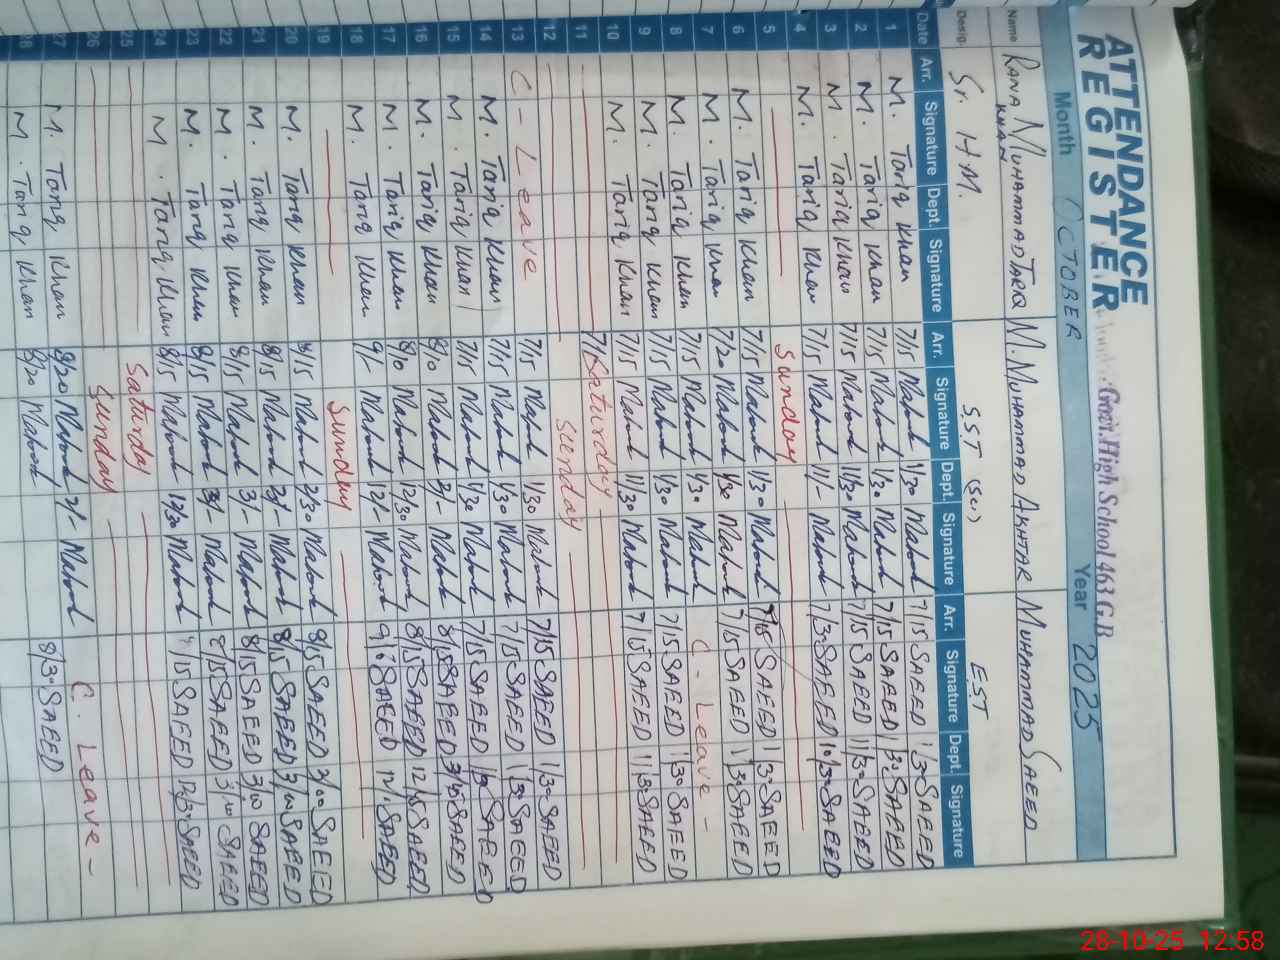 ATTENDANCE REGISTER
Govt. High School 463 G.B
Month OCTOBER Year 2025
Name RANA MUHAMMAD TARIQ KHAN M. MUHAMMAD AKHTAR MUHAMMAD SAEED
Desig. Sr. H.M. S.S.T (Sci) E.S.T
Date Arr. Signature Dept. Signature Arr. Signature Dept. Signature Arr. Signature Dept. Signature
1 M. Tariq Khan 7/15 1/30 7/15 SAEED 1/30 SAEED
2 M. Tariq Khan 7/15 1/30 7/15 SAEED 1/30 SAEED
3 M. Tariq Khan 7/15 11/30 7/15 SAEED 11/30 SAEED
4 M. Tariq Khan 7/15 11/- 7/30 SAEED SAEED
5 Sunday
6 M. Tariq Khan 7/15 1/30 7/15 SAEED 1/30 SAEED
7 M. Tariq Khan 7/20 1/30 7/15 SAEED 1/30 SAEED
8 M. Tariq Khan 7/15 1/30 C. Leave -
9 M. Tariq Khan 7/15 1/30 7/15 SAEED 1/30 SAEED
10 M. Tariq Khan 7/15 11/30 7/15 SAEED 11/30 SAEED
11 Saturday
12 Sunday
13 C - Leave 7/15 1/30 7/15 SAEED 1/30 SAEED
14 M. Tariq Khan 7/15 1/30 7/15 SAEED 1/30 SAEED
15 M. Tariq Khan 7/15 1/30 7/15 SAEED SAEED
16 M. Tariq Khan 8/10 3/- 8/15 SAEED 3/15 SAEED
17 M. Tariq Khan 8/10 12/30 8/15 SAEED SAEED
18 M. Tariq Khan 9/- 12/- SAEED SAEED
19 Sunday
20 M. Tariq Khan 8/15 3/30 8/15 SAEED 3/00 SAEED
21 M. Tariq Khan 8/15 3/- 8/15 SAEED 3/10 SAEED
22 M. Tariq Khan 8/15 3/- 8/15 SAEED 3/10 SAEED
23 M. Tariq Khan 8/15 3/- 8/15 SAEED 3/10 SAEED
24 M. Tariq Khan 8/15 12/30 SAEED 12/30 SAEED
25 Saturday
26 Sunday
27 M. Tariq Khan 8/20 C. Leave -
28 M. Tariq Khan 8/20 8/30 SAEED
28-10-25 12:58